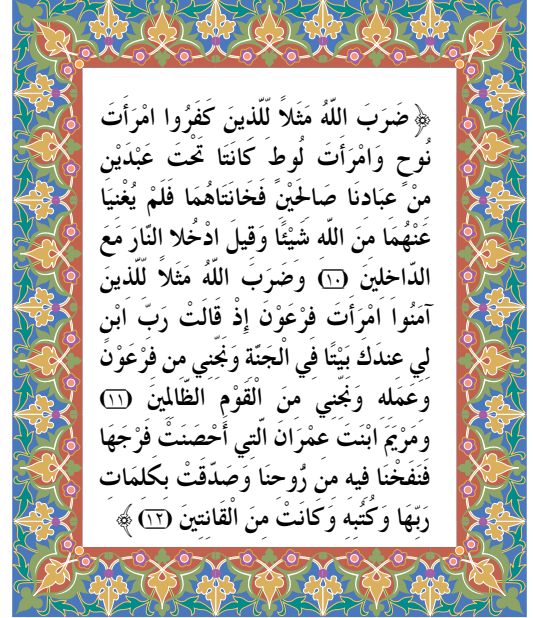 ﴿ ضَرَبَ اللَّهُ مَثَلاً لِّلَّذِينَ كَفَرُوا امْرَأَتَ
نُوحٍ وَامْرَأَتَ لُوطٍ كَانَتَا تَحْتَ عَبْدَيْنِ
مِنْ عِبَادِنَا صَالِحَيْنِ فَخَانَتَاهُمَا فَلَمْ يُغْنِيَا
عَنْهُمَا مِنَ اللَّهِ شَيْئًا وَقِيلَ ادْخُلا النَّارَ مَعَ
الدَّاخِلِينَ (١٠) وَضَرَبَ اللَّهُ مَثَلاً لِّلَّذِينَ
آمَنُوا امْرَأَتَ فِرْعَوْنَ إِذْ قَالَتْ رَبِّ ابْنِ
لِي عِندَكَ بَيْتًا فِي الْجَنَّةِ وَنَجِّنِي مِن فِرْعَوْنَ
وَعَمَلِهِ وَنَجِّنِي مِنَ الْقَوْمِ الظَّالِمِينَ (١١)
وَمَرْيَمَ ابْنَتَ عِمْرَانَ الَّتِي أَحْصَنَتْ فَرْجَهَا
فَنَفَخْنَا فِيهِ مِن رُّوحِنَا وَصَدَّقَتْ بِكَلِمَاتِ
رَبِّهَا وَكُتُبِهِ وَكَانَتْ مِنَ الْقَانِتِينَ (١٢) ﴾